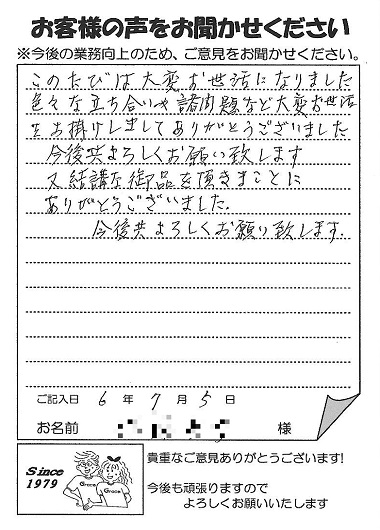 お客様の声をお聞かせください
※今後の業務向上のため、ご意見をお聞かせください。
このたびは大変お世話になりました
色々な立ち合いや諸問題など大変お世話
をお掛けしましてありがとうございました
今後共よろしくお願い致します
又結講な御品を頂きまことに
ありがとうございました.
今後共よろしくお願り致します.
ご記入日 6 年 7 月 5 日
お名前 様
Since
1979
Grace
Grace
貴重なご意見ありがとうございます!
今後も頑張りますので
よろしくお願いいたします